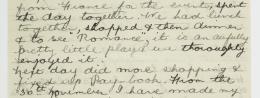 from France for the event, spent
the day together. We had lunch
together, shopped & then dinner
& to see "Romance", it is an awfully
pretty little play & we thoroughly
enjoyed it.
Next day did more shopping &
up Pay book. From the
30th November I have made my